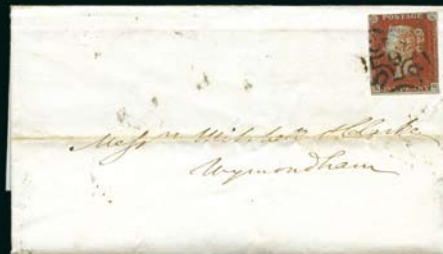 POSTAGE
Mess.rs Mitchell & Clarke
Wymondham